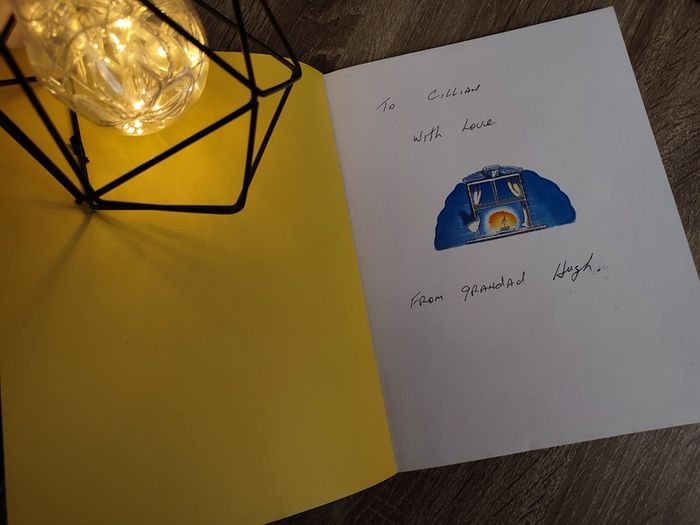 To CILLIAN
With Love
From grandad Hugh.